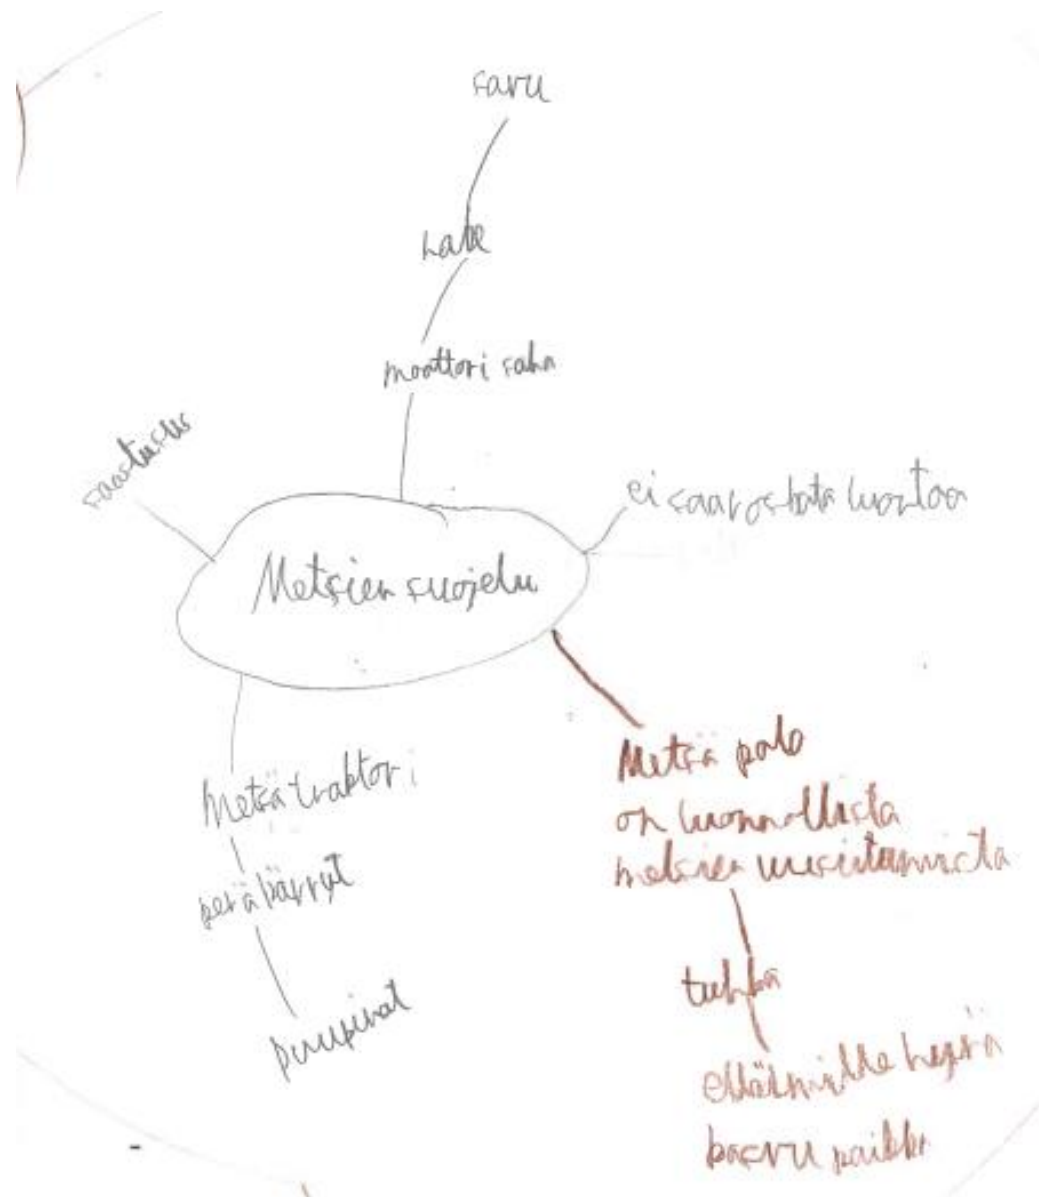 savu
hake
moottori saha
saastutus
ei saa roskata luontoa
Metsien suojelu
Metsä traktori
peräkärryt
puupinot
Metsä palo
on luonnollista
metsien uusiutumista
tuhka
hyvä
kasvu paikka